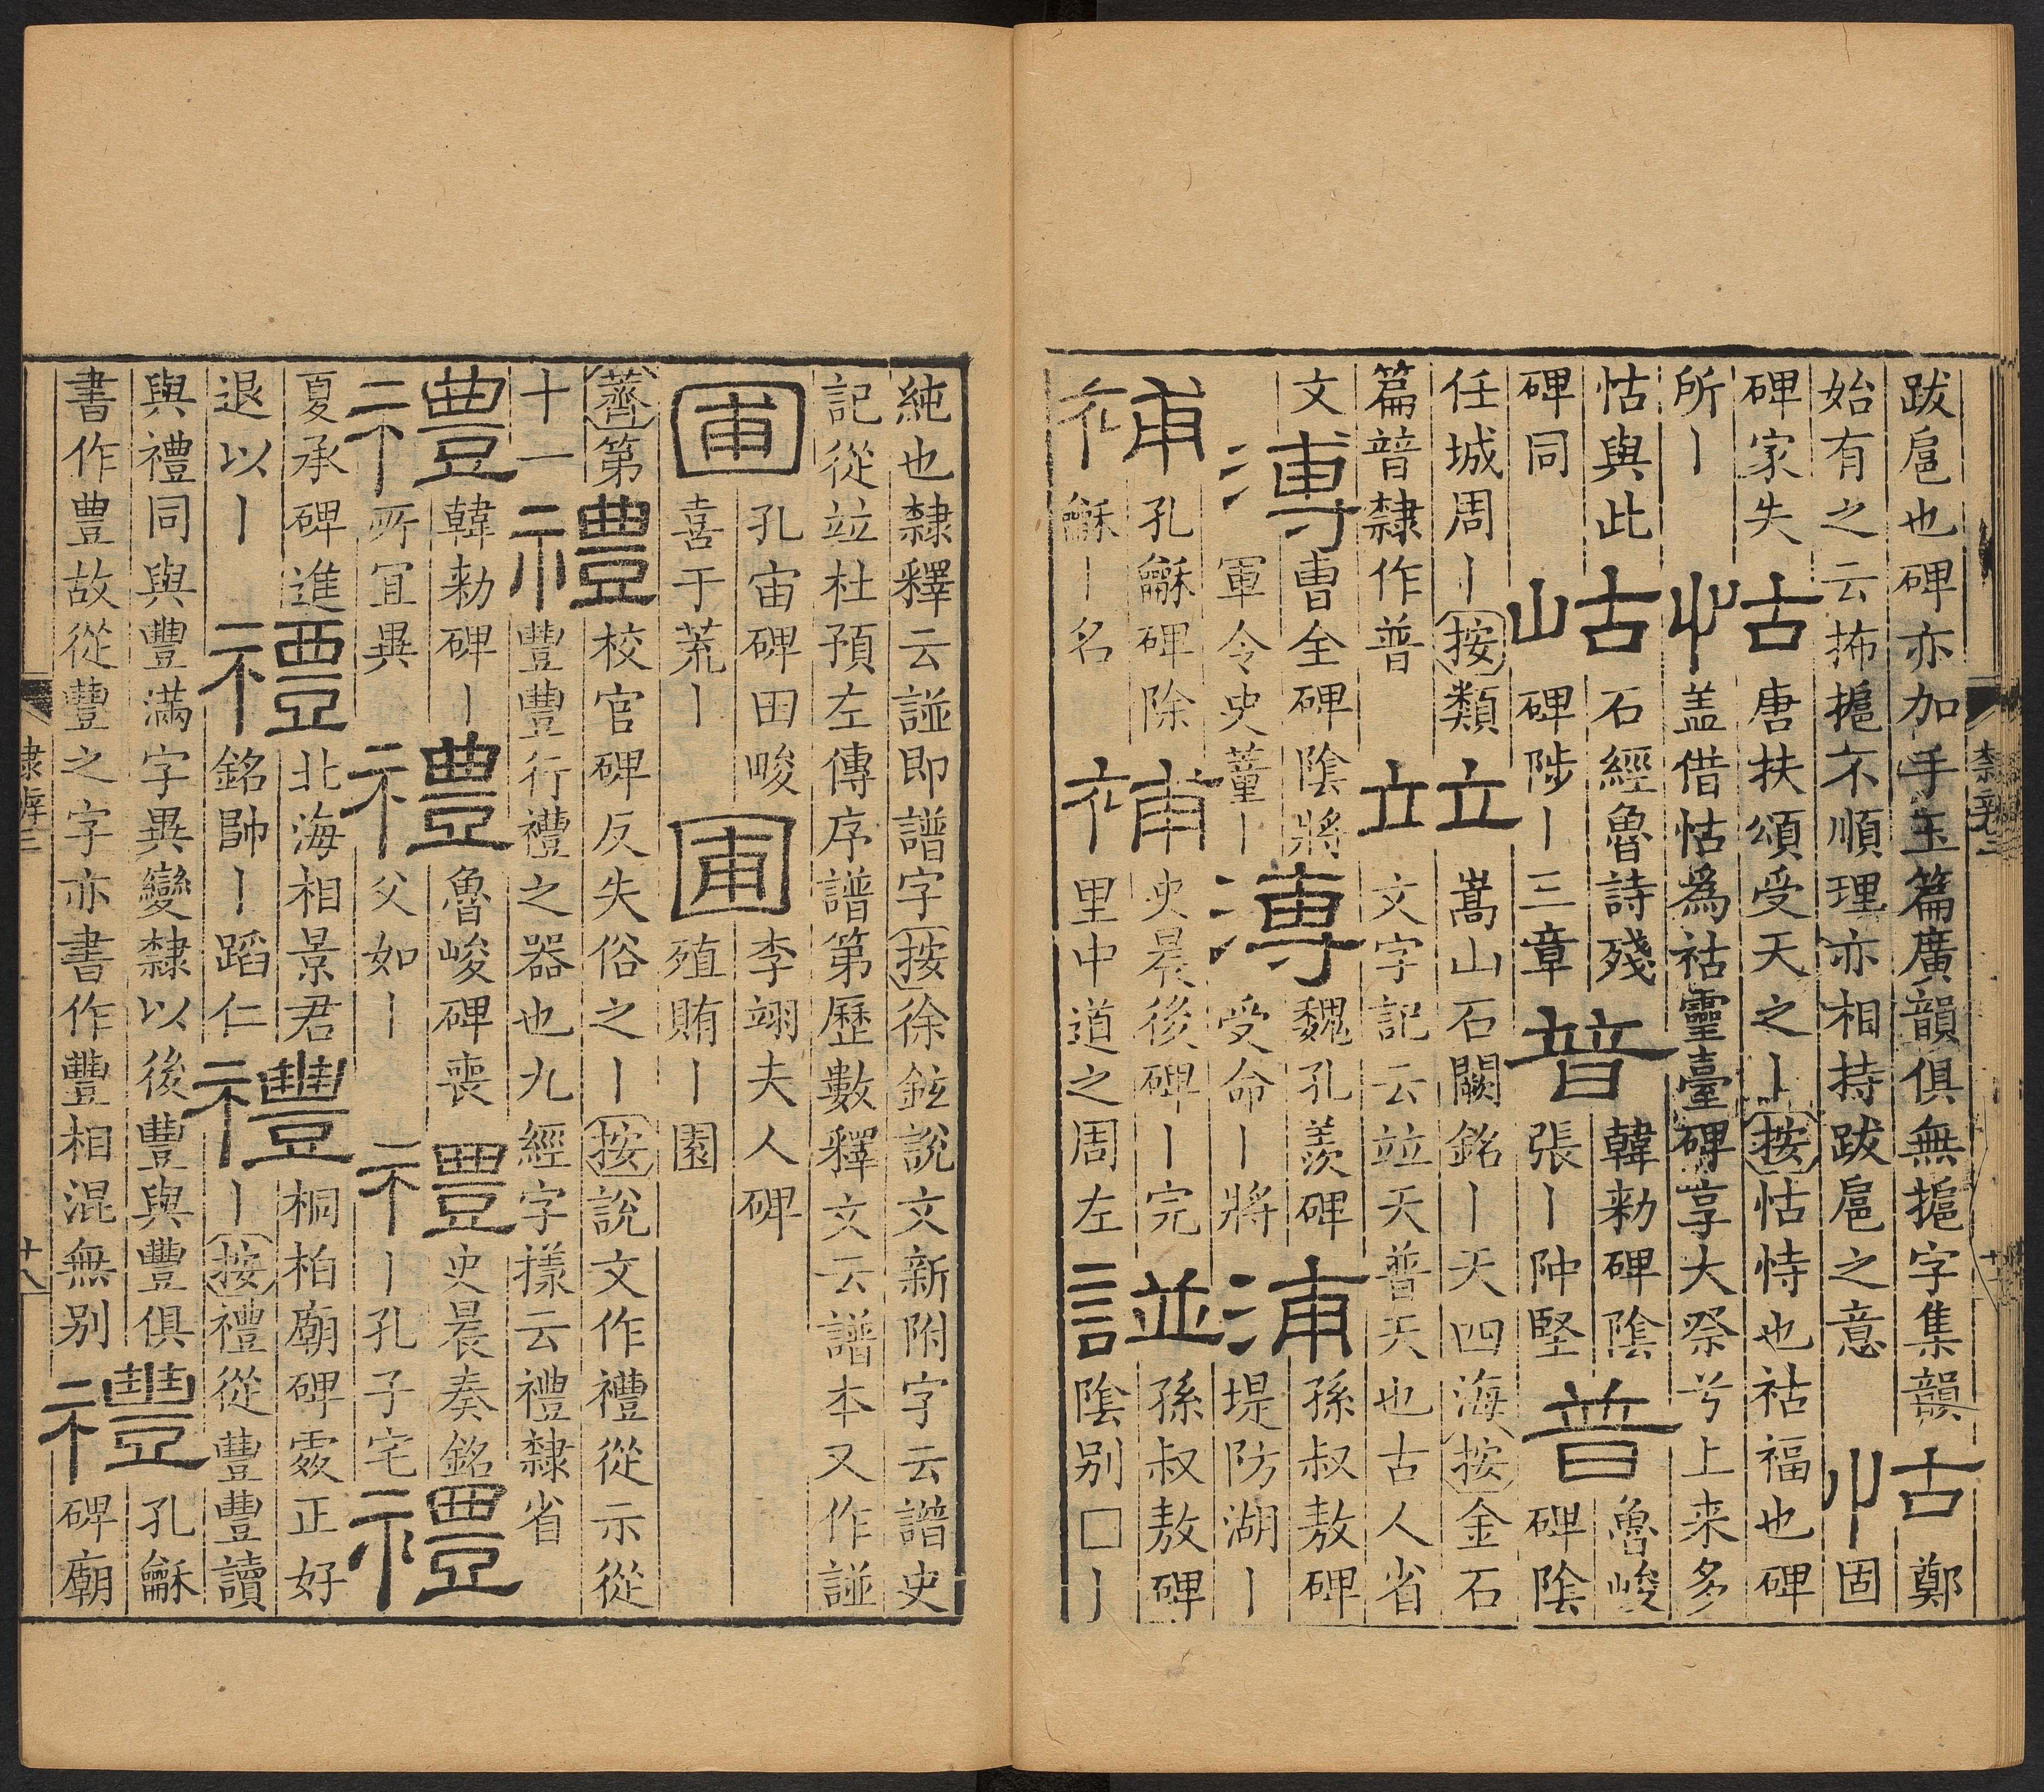 跋扈也碑亦加手玉篇廣韻俱無㨭字集韻怙鄭
始有之云抪㨭不順理亦相持跋扈之意固
碑家失怙唐扶頌受天之丨按怙恃也祜福也碑
所丨蓋借怙爲祜靈臺碑享大祭兮上来多
怙與此岵石經魯詩殘暜韓勑碑陰普魯峻
碑同碑陟丨三章張丨仲堅碑陰
任城周丨按類竝嵩山石闕銘丨天四海按金石
篇暜隸作普文字記云竝天普天也古人省
文溥曹全碑陰將溥魏孔羨碑浦孫叔敖碑
軍令史董丨受命丨將堤防湖丨
補孔龢碑除補史晨後碑丨完諩孫叔敖碑
龢丨名里中道之周左陰别□丨
純也隸釋云諩即譜字按徐鉉說文新附字云譜史
記從竝杜預左傳序譜第歷數釋文云譜本又作諩
圃孔宙碑田畯圃李翊夫人碑
喜于荒丨殖賄丨園
薺第禮校官碑反失俗之丨按說文作禮從示從
十一豐豐行禮之器也九經字樣云禮隸省
禮韓勑碑丨禮魯峻碑喪禮史晨奏銘禮
所宜異父如丨丨孔子宅
夏承碑進禮北海相景君禮桐柏廟碑處正好
退以丨銘帥丨蹈仁丨按禮從豐豐讀
與禮同與豐滿字異變隸以後豐與豐俱禮孔龢
書作豊故從豐之字亦書作豐相混無别碑廟
隸辨三
廿八